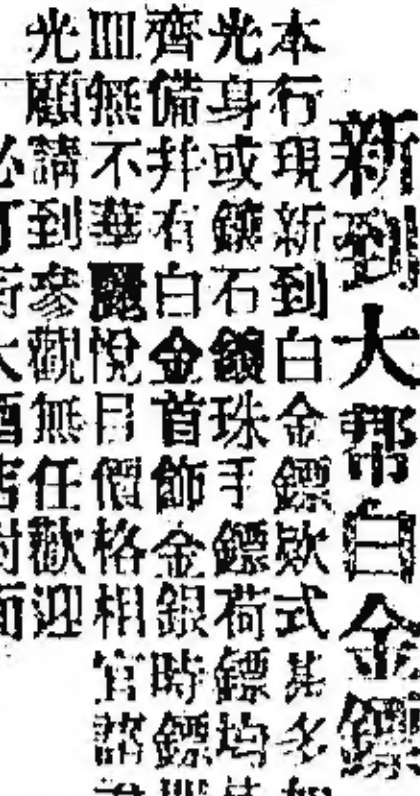 新到大帮白金鏢
本行現新到白金鏢欵式甚多
光身或鑲石鑲珠手鏢荷鏢均
齊備并有白金首飾金銀時鏢
皿無不華麗悅目價格相宜諸
光顧請到參觀無任歡迎